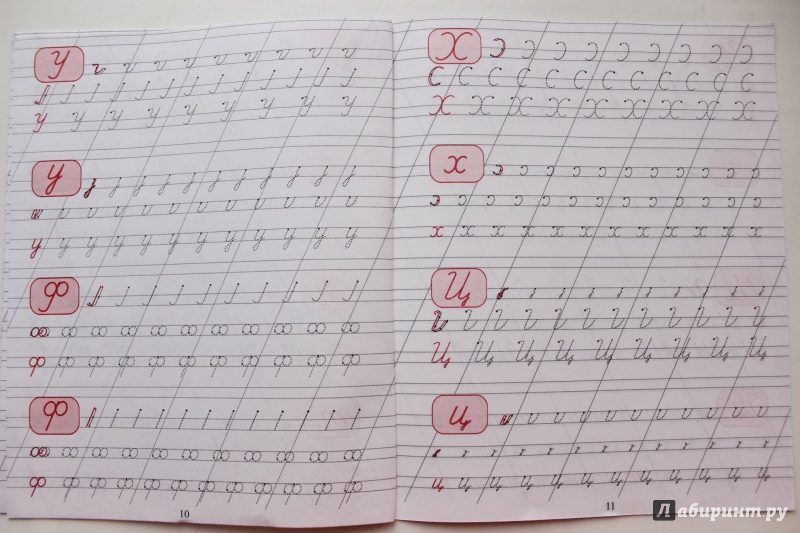 У
У У У У У У У У У
у
у у у у у у у у у у у у
Ф
Ф Ф Ф Ф Ф Ф Ф Ф Ф Ф Ф
ф
ф ф ф ф ф ф ф ф ф ф ф ф
10
Х
Х Х Х Х Х Х Х Х Х
х
х х х х х х х х х х х х
Ц
Ц Ц Ц Ц Ц Ц Ц Ц Ц
ц
ц ц ц ц ц ц ц ц ц ц ц ц
11
Лабиринт.ру